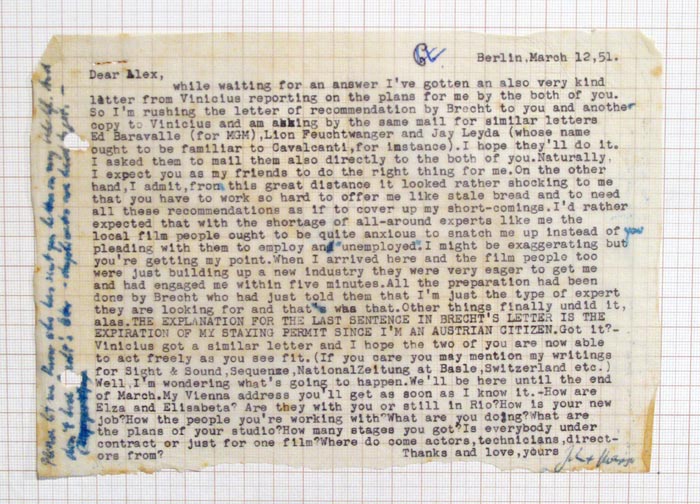 Berlin,March 12,51.
Dear Alex,
while waiting for an answer I've gotten an also very kind
letter from Vinicius reporting on the plans for me by the both of you.
So I'm rushing the letter of recommendation by Brecht to you and another
copy to Vinicius and am asking by the same mail for similar letters
Ed Baravalle (for MGM),Lion Feuchtwanger and Jay Leyda (whose name
ought to be familiar to Cavalcanti,for instance).I hope they'll do it.
I asked them to mail them also directly to the both of you.Naturally,
I expect you as my friends to do the right thing for me.On the other
hand,I admit,from this great distance it looked rather shocking to me
that you have to work so hard to offer me like stale bread and to need
all these recommendations as if to cover up my short-comings.I'd rather
expected that with the shortage of all-around experts like me the
local film people ought to be quite anxious to snatch me up instead of you
pleading with them to employ an unemployed.I might be exaggerating but
you're getting my point.When I arrived here and the film people too
were just building up a new industry they were very eager to get me
and had engaged me within five minutes.All the preparation had been
done by Brecht who had just told them that I'm just the type of expert
they are looking for and that's was that.Other things finally undid it,
alas.THE EXPLANATION FOR THE LAST SENTENCE IN BRECHT'S LETTER IS THE
EXPIRATION OF MY STAYING PERMIT SINCE I'M AN AUSTRIAN CITIZEN.Got it?-
Vinicius got a similar letter and I hope the two of you are now able
to act freely as you see fit.(If you care you may mention my writings
for Sight & Sound,Sequenze,NationalZeitung at Basle,Switzerland etc.)
Well,I'm wondering what's going to happen.We'll be here until the end
of March.My Vienna address you'll get as soon as I know it.-How are
Elza and Elisabeta? Are they with you or still in Rio?How is your new
job?How the people you're working with?What are you doing?What are
the plans of your studio?How many stages you got?Is everybody under
contract or just for one film?Where do come actors,technicians,direct-
ors from? Thanks and love,yours
Please let me know who has sent you letters on my behalf. And
don't